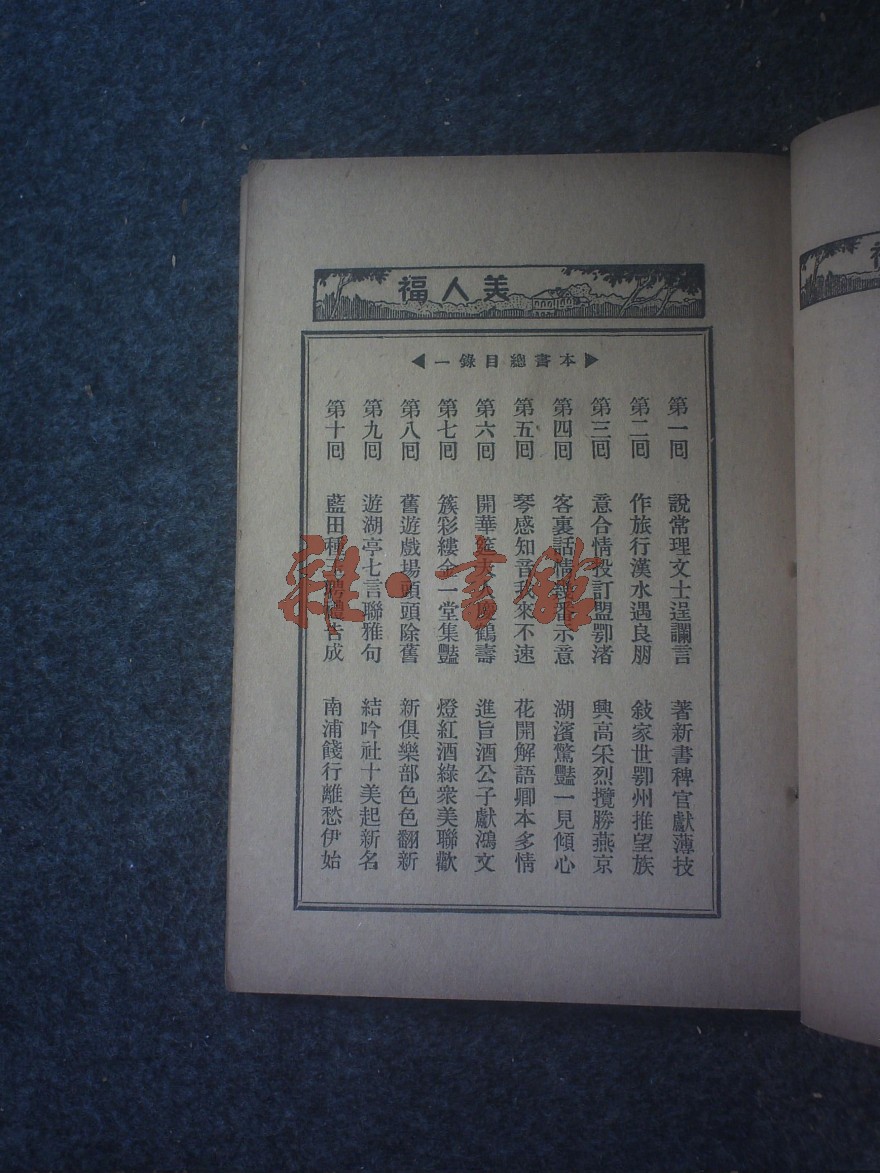 美人福
本書總目錄一
第一囘 說常理文士逞讕言 著新書稗官獻薄技
第二囘 作旅行漢水遇良朋 敍家世鄂州推望族
第三囘 意合情投訂盟鄂渚 興高采烈攬勝燕京
第四囘 客裏話情 番示意 湖濱驚豔一見傾心
第五囘 琴感知音我來不速 花開解語卿本多情
第六囘 開華筵 鶴壽 進旨酒公子獻鴻文
第七囘 簇彩縷金一堂集豔 燈紅酒綠衆美聯歡
第八囘 舊遊戲場頭頭除舊 新俱樂部色色翻新
第九囘 遊湖亭七言聯雅句 結吟社十美起新名
第十囘 藍田種玉聘禮吿成 南浦餞行離愁伊始
雜·書館